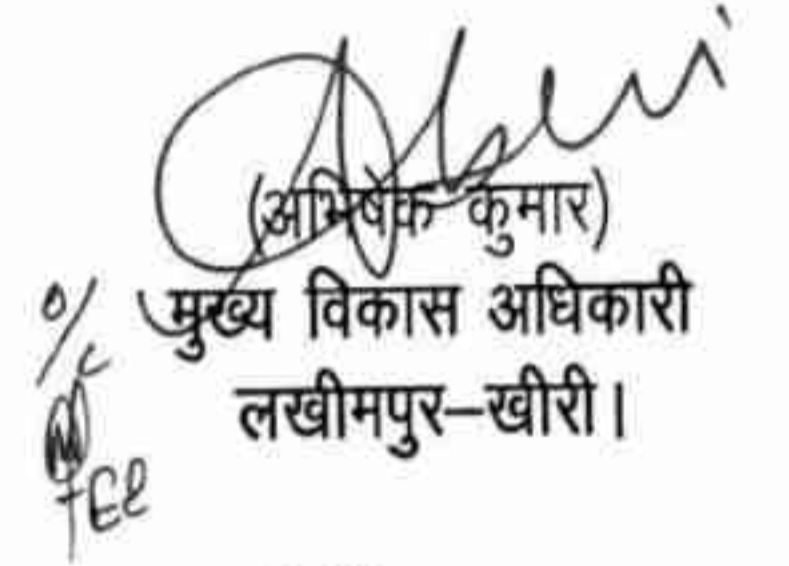 (अभिषेक कुमार)
मुख्य विकास अधिकारी
लखीमपुर–खीरी।
O/C